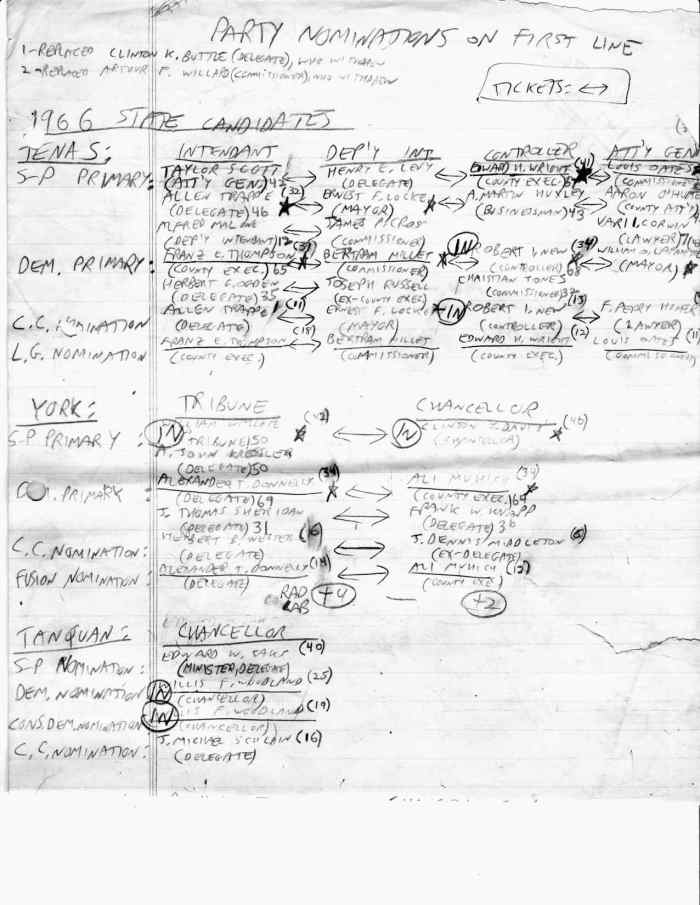 PARTY NOMINATIONS ON FIRST LINE
1-REPLACED CLINTON K. BUTTLE (DELEGATE), WHO WITHDRAW
2-REPLACED ARTHUR F. WILLARD (COMMISSIONER), WHO WITHDRAW
TICKETS: ↔
1966 STATE CANDIDATES
TENAS: INTENDANT DEP'Y INT. CONTROLLER ATT'Y GEN
S-P PRIMARY: TAYLOR SCOTT ↔ HENRY E. LEVY ↔ EDWARD H. WRIGHT (41) ★ ↔ LOUIS OATES
(ATT'Y GEN) 42 (DELEGATE) (COUNTY EXEC.) (COMMISSIONE
ALLEN TRAPPE (32) ↔ ERNEST F. LOCKE ↔ A. MARTIN HUXLEY AARON O'HU
(DELEGATE) 46 ★ (MAYOR) ★ (BUSINESSMAN) 43 (COUNTY ATT'Y)
ALFRED MALONE ↔ JAMES P. CROSS VARI L. CORWIN
(DEP'Y INTENDANT) 12 (COMMISSIONER) (LAWYER)
DEM. PRIMARY: FRANZ E. THOMPSON (39) ★ ↔ BERTRAM MILLET ★ ↔ IN ROBERT I. NEW (34) ★ ↔ WILLIAM D.
(COUNTY EXEC.) 65 (COMMISSIONER) (CONTROLLER) 68 (MAYOR) ★
HERBERT E. OGDEN ↔ JOSEPH RUSSELL CHRISTIAN TONES
(DELEGATE) 35 (EX-COUNTY EXEC) (COMMISSIONER) 32
C.C. NOMINATION ALLEN TRAPPE (11) ↔ ERNEST F. LOCKE ↔ IN ROBERT I. NEW (13) ↔ F. PERRY
(DELEGATE) (MAYOR) (CONTROLLER) (LAWYER)
L.G. NOMINATION FRANZ E. THOMPSON (18) ↔ BERTRAM MILLET EDWARD H. WRIGHT (12) LOUIS OATES (11
(COUNTY EXEC.) (COMMISSIONER) (COUNTY EXEC.)
YORK: TRIBUNE CHANCELLOR
S-P PRIMARY: IN (42) ★ ↔ IN CLINTON (40) ★
(TRIBUNE) 50
A. JOHN KRESSLER
(DELEGATE) 50
DEM. PRIMARY ALEXANDER T. DONNELLY (34) ★ ↔ ALI MUHICH (34)
(DELEGATE) 69 (COUNTY EXEC.) 64 ★
J. THOMAS SHERIDAN ↔ FRANK W. KNAPP
(DELEGATE) 31 (DELEGATE) 36
C.C. NOMINATION: HERBERT (16) ↔ J. DENNIS MIDDLETON (6)
(DELEGATE) (EX-DELEGATE)
FUSION NOMINATION: ALEXANDER T. DONNELLY (14) ↔ ALI MUHICH (12)
(DELEGATE) (COUNTY EXEC)
RAD +4 — +2
LAB
TANQUAN: CHANCELLOR
S-P NOMINATION: EDWARD W. SAKS (40)
(MINISTER, DELEGATE)
DEM. NOMINATION IN WILLIS F. WOODLAND (25)
(CHANCELLOR)
CONS. DEM. NOMINATION IN WILLIS F. WOODLAND (19)
(CHANCELLOR)
C.C. NOMINATION: J. MICHAEL (16)
(DELEGATE)